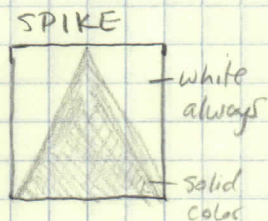 SPIKE
white
always
solid
color